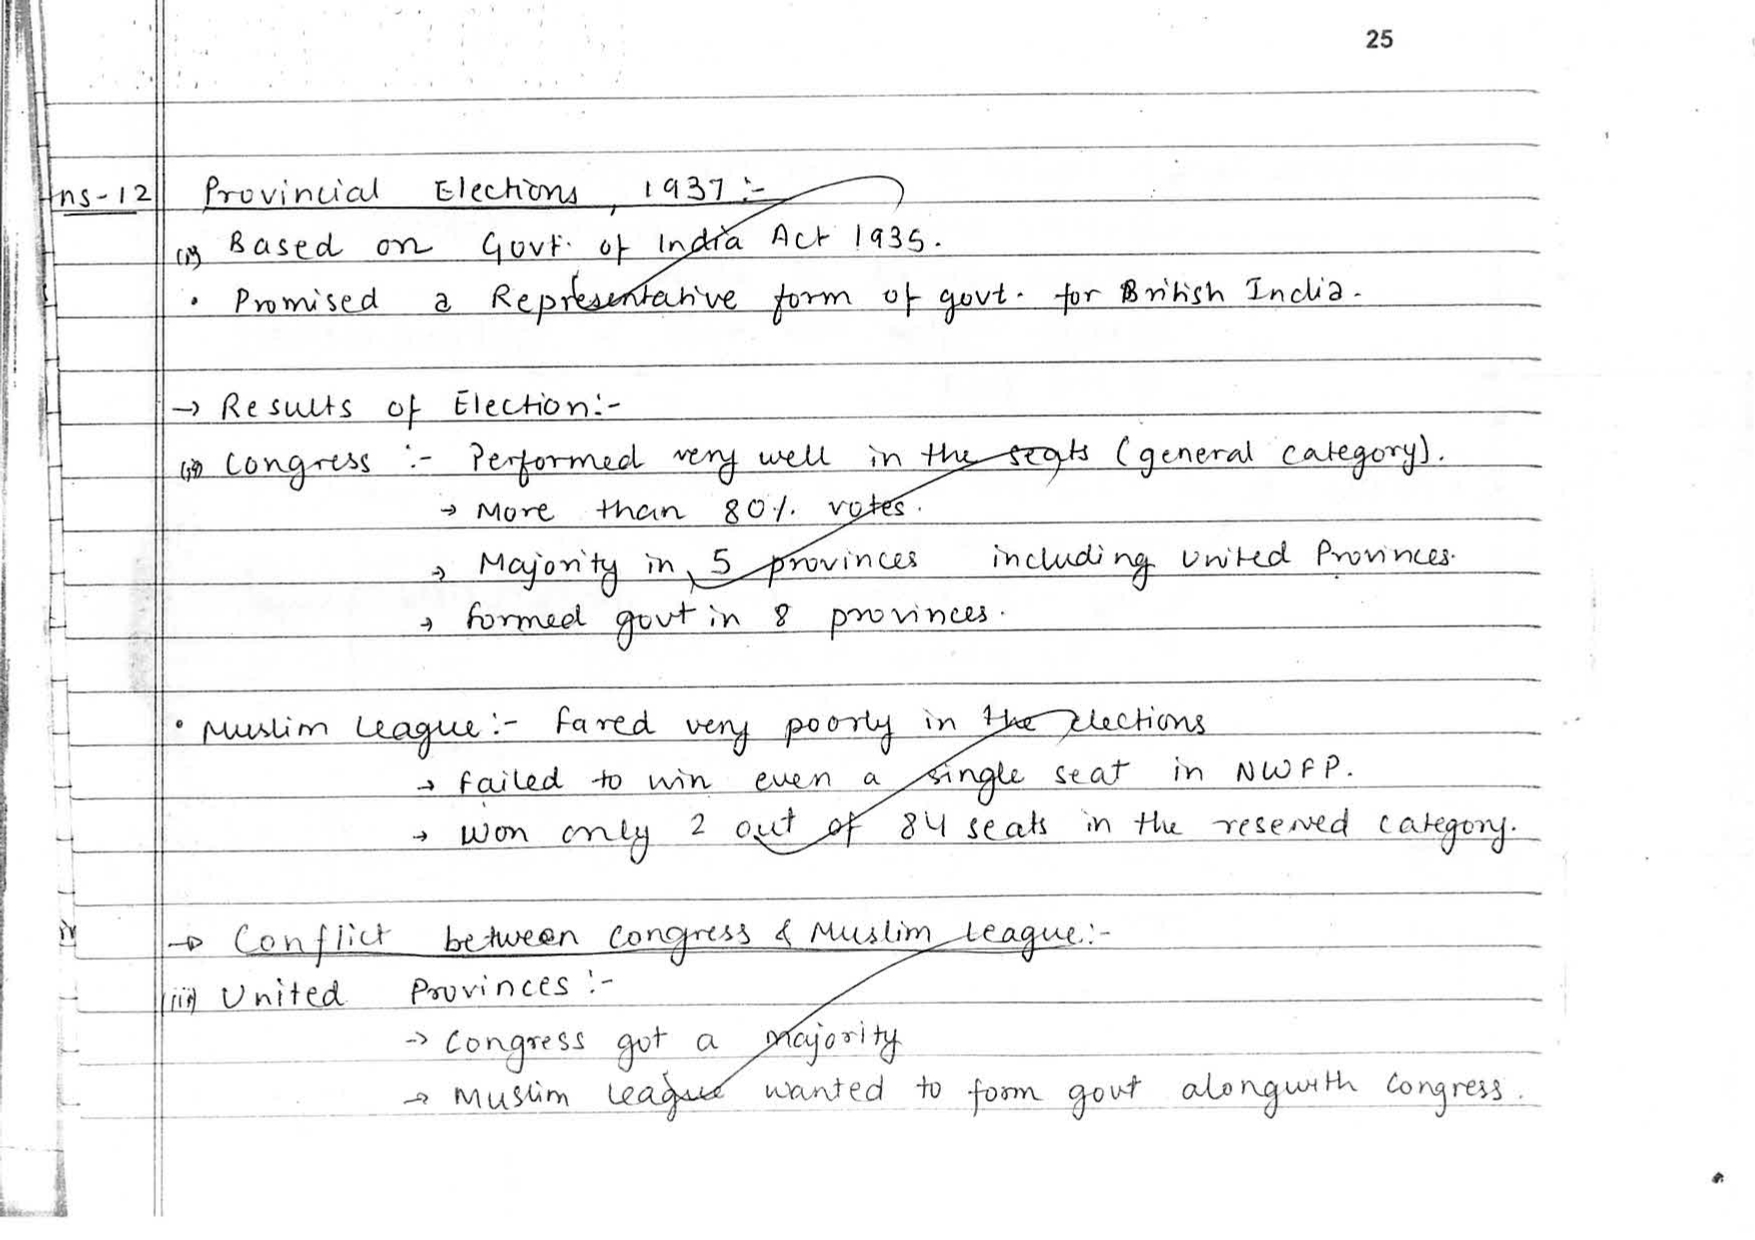 25
ns-12 Provincial Elections, 1937:-
(i) Based on Govt. of India Act 1935.
• Promised a Representative form of govt. for British India.
→ Results of Election:-
(ii) Congress :- Performed very well in the seats (general category).
→ More than 80% votes.
→ Majority in 5 provinces including United Provinces.
→ formed govt in 8 provinces.
• Muslim League:- Fared very poorly in the elections
→ Failed to win even a single seat in NWFP.
→ Won only 2 out of 84 seats in the reserved category.
→ Conflict between Congress & Muslim League:-
(iii) United Provinces:-
→ Congress got a majority
→ Muslim League wanted to form govt alongwith Congress.